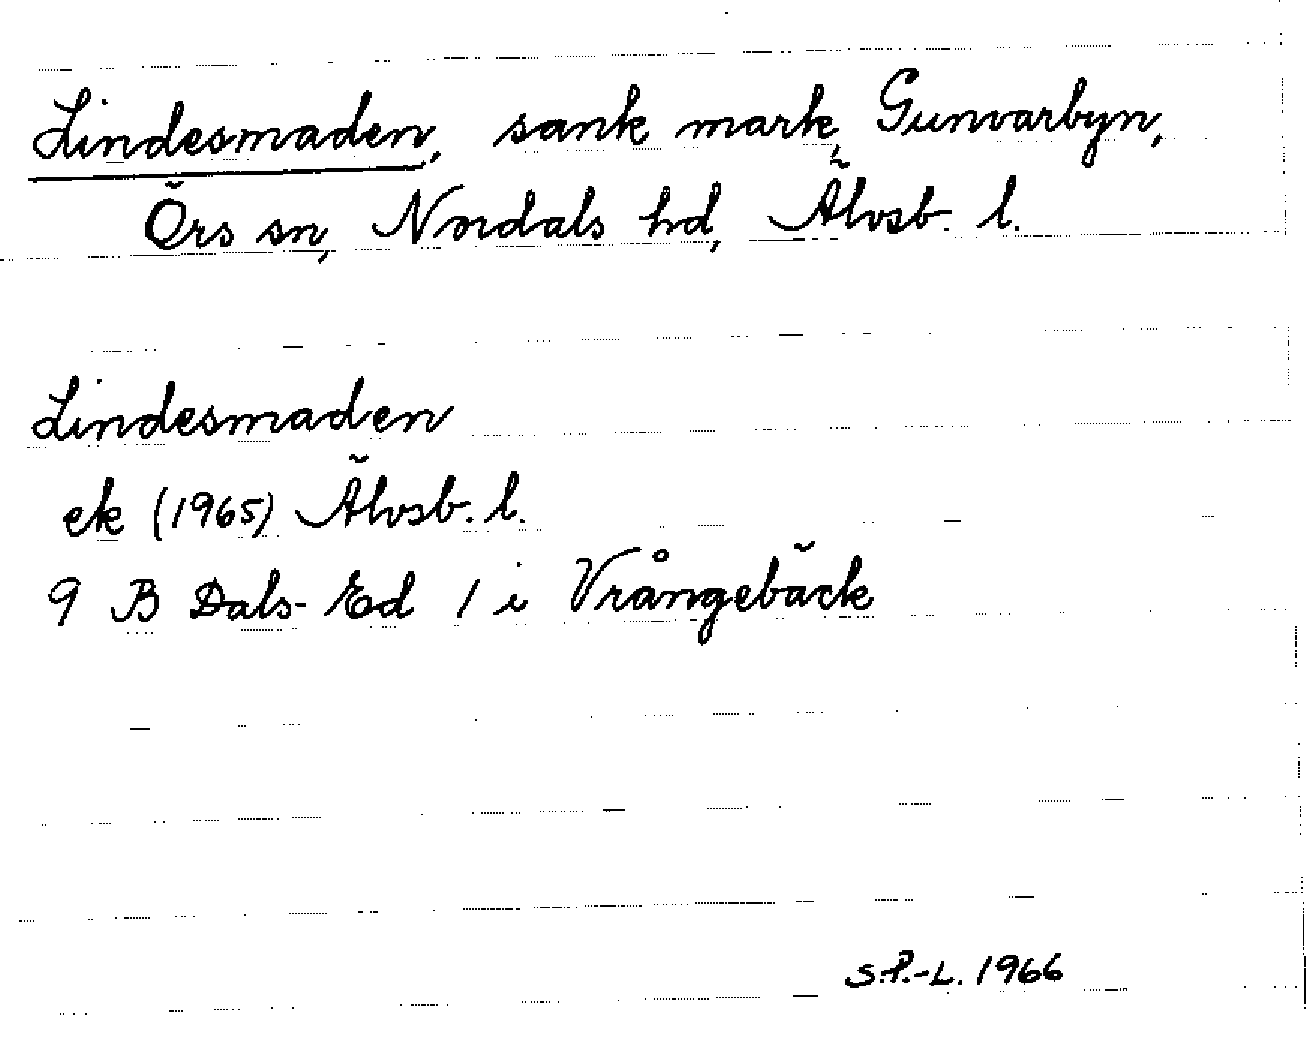 Lindesmaden, sank mark, Gunvarbyn,
Örs sn, Nordals hd, Älvsb. l.
Lindesmaden
ek (1965) Älvsb. l.
9 B Dals-Ed 1 i Vrångebäck
S.P.-L. 1966